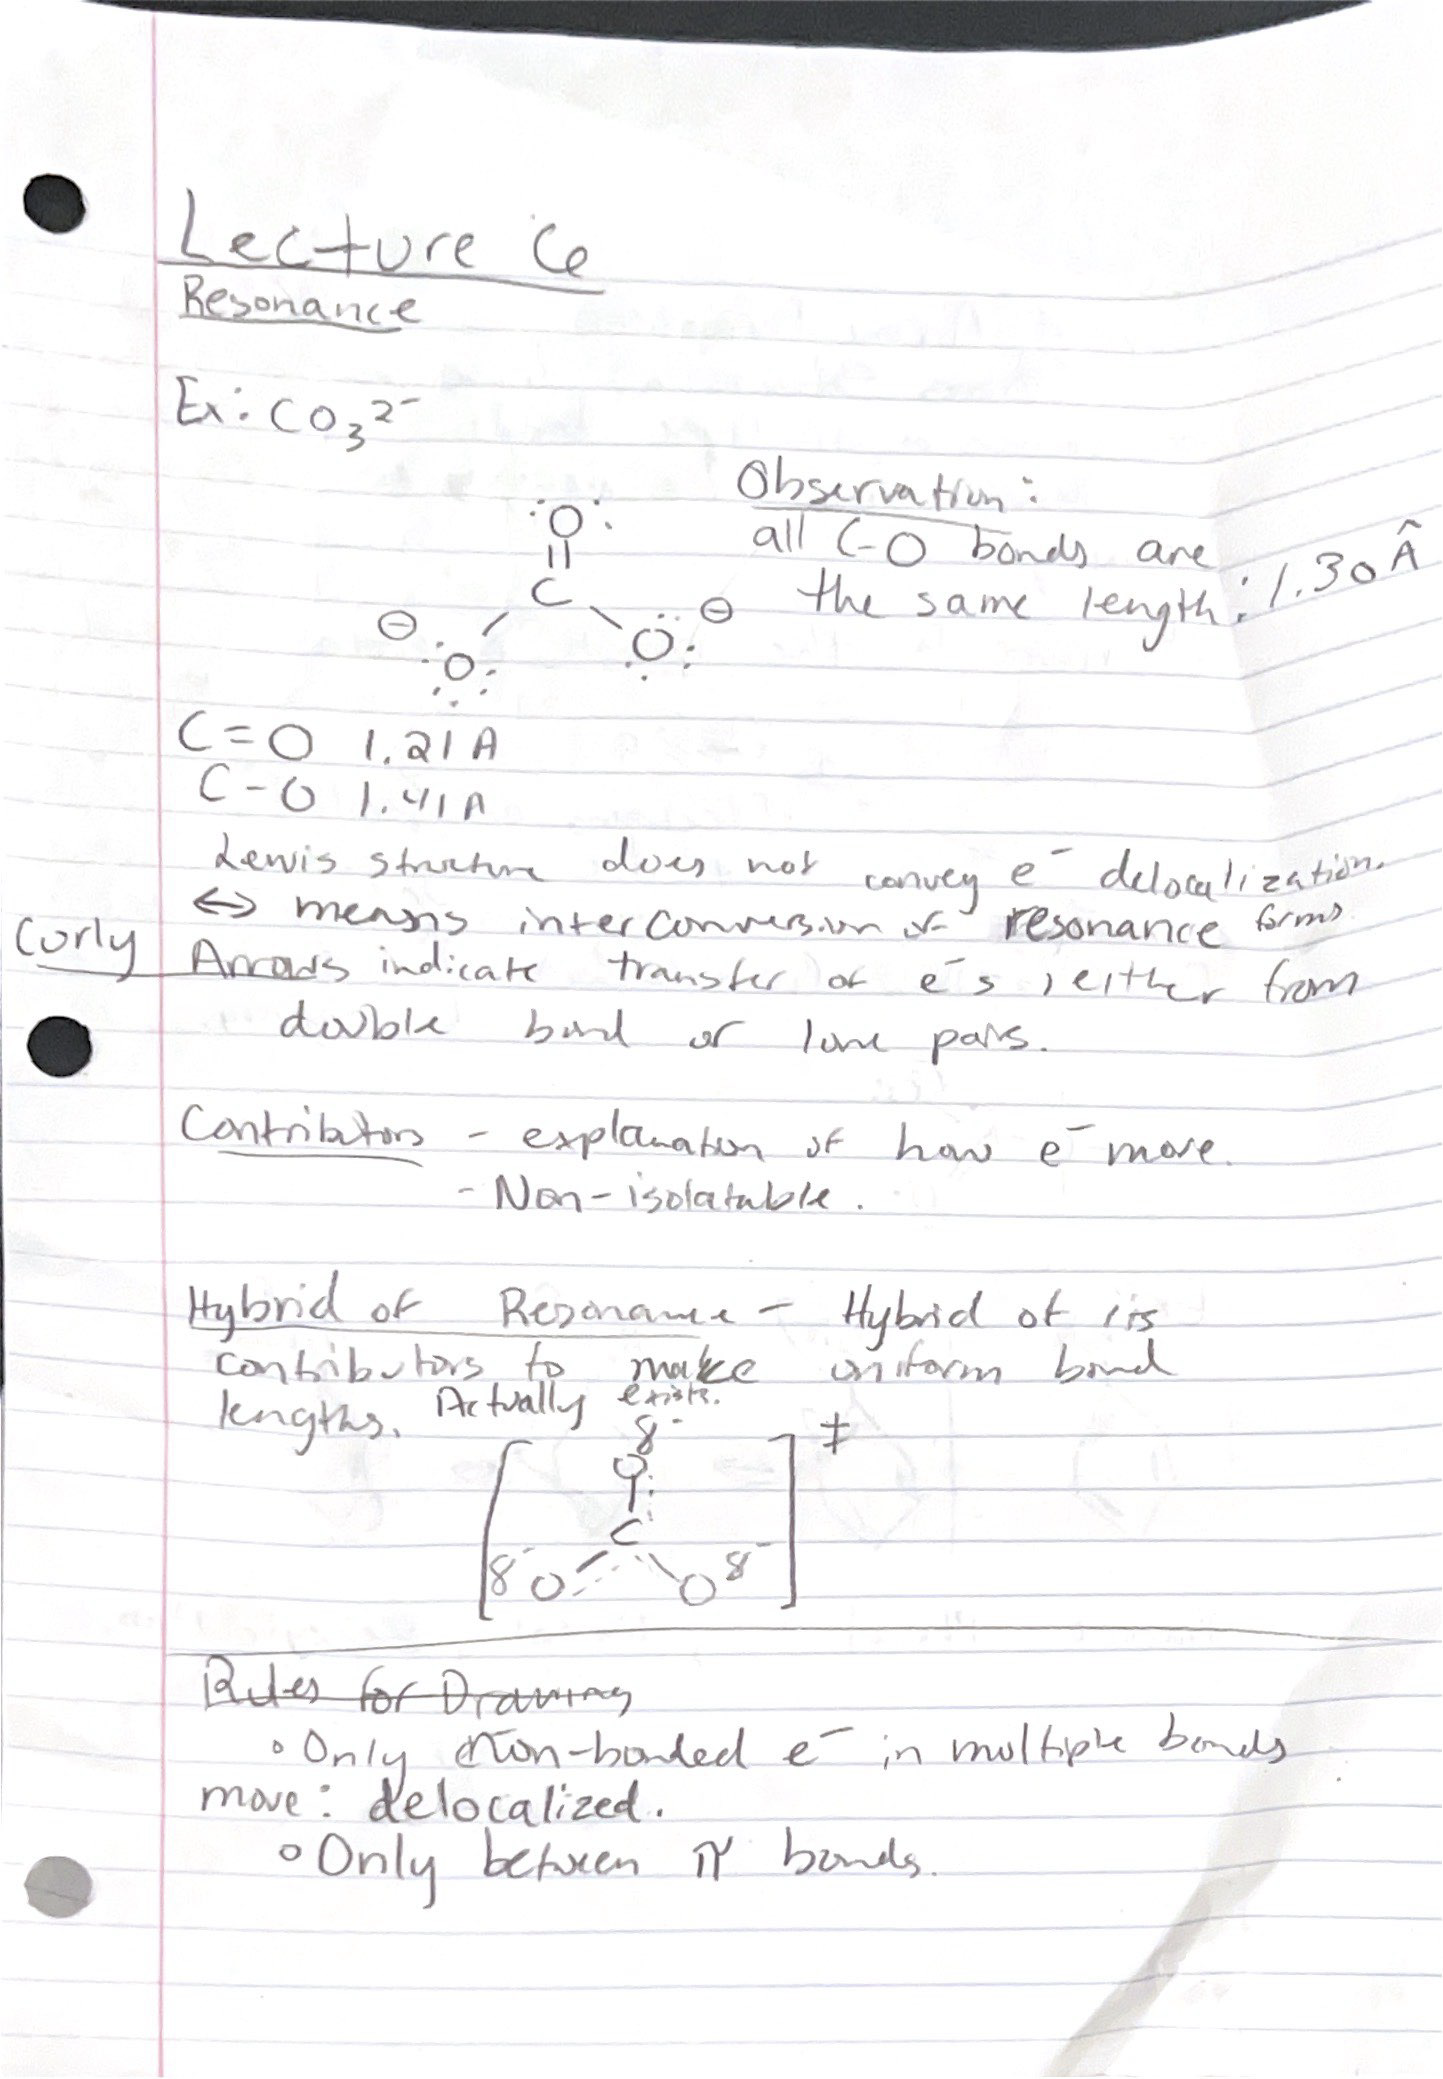 Lecture 6
Resonance
Ex: CO₃²⁻
Observation:
all C-O bonds are
the same length: 1.30 Å
:O:
||
C
⊖ :O: :O: ⊖
C=O 1.21 A
C-O 1.41 A
Lewis structure does not convey e⁻ delocalization.
↔ means interconversion of resonance forms
Curly Arrows indicate transfer of e⁻s, either from
double bond or lone pairs.
Contributors - explanation of how e⁻ move.
- Non-isolatable.
Hybrid of Resonance - Hybrid of its
contributors to make uniform bond
lengths. Actually exists.
δ⁻
O ‡
C
δ⁻ O O δ⁻
Rules for Drawing
• Only non-bonded e⁻ in multiple bonds
move: delocalized.
• Only between π bonds.